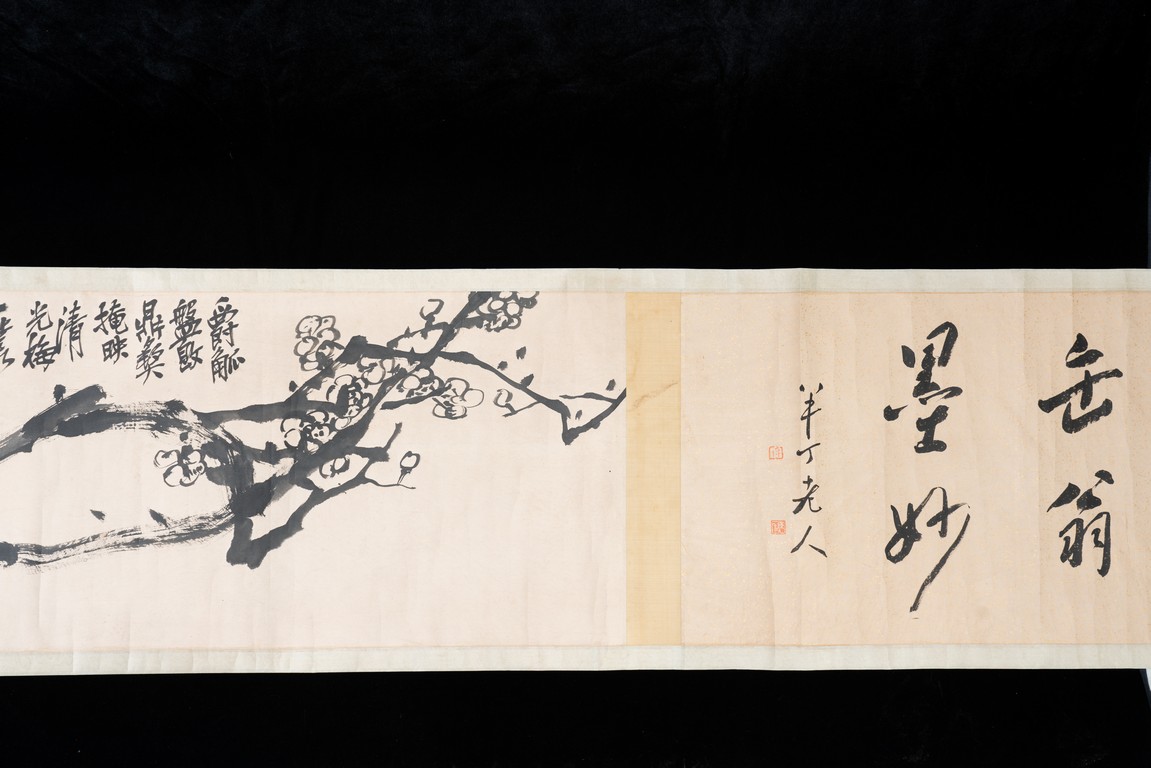 缶翁
墨妙
半丁老人
爵觚
盤敦
鼎彝
掩映
清
光梅